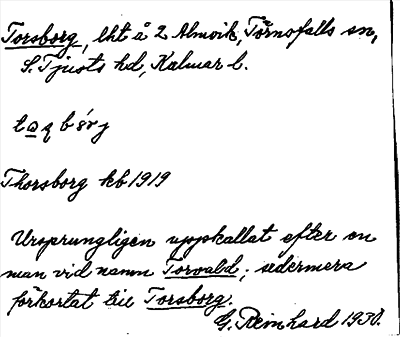 Torsborg, lht å 2 Almvik, Törnsfalls sn,
S. Tjusts hd, Kalmar l.
Thorsborg kb 1919
Ursprungligen uppkallat efter en
man vid namn Torvald; sedermera
förkortat till Torsborg.
G. Reinhard 1930.